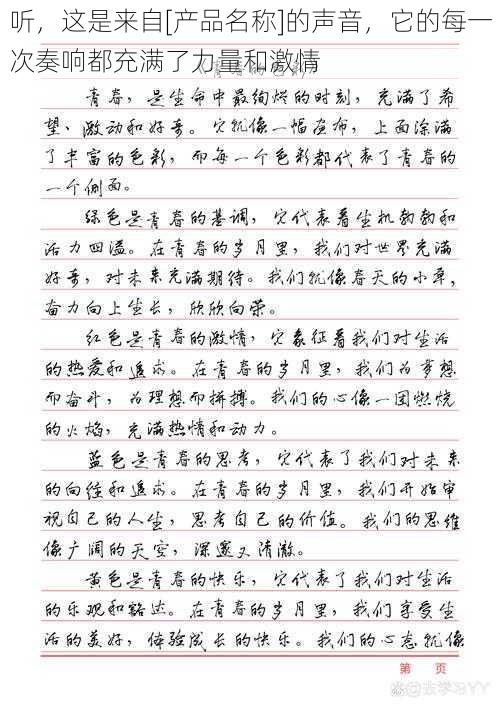 听，这是来自[产品名称]的声音，它的每一
次奏响都充满了力量和激情
青春，是生命中最绚烂的时刻，充满了希
望、激动和好奇。它就像一幅画布，上面涂满
了丰富的色彩，而每一个色彩都代表了青春的
一个侧面。
绿色是青春的基调，它代表着生机勃勃和
活力四溢。在青春的岁月里，我们对世界充满
好奇，对未来充满期待。我们就像春天的小草，
奋力向上生长，欣欣向荣。
红色是青春的激情，它象征着我们对生活
的热爱和追求。在青春的岁月里，我们为梦想
而奋斗，为理想而拼搏。我们的心像一团燃烧
的火焰，充满热情和动力。
蓝色是青春的思考，它代表了我们对未来
的向往和追求。在青春的岁月里，我们开始审
视自己的人生，思考自己的价值。我们的思维
像广阔的天空，深邃又清澈。
黄色是青春的快乐，它代表了我们对生活
的乐观和豁达。在青春的岁月里，我们享受生
活的美好，体验成长的快乐。我们的心态就像
第 页
@去学习YY